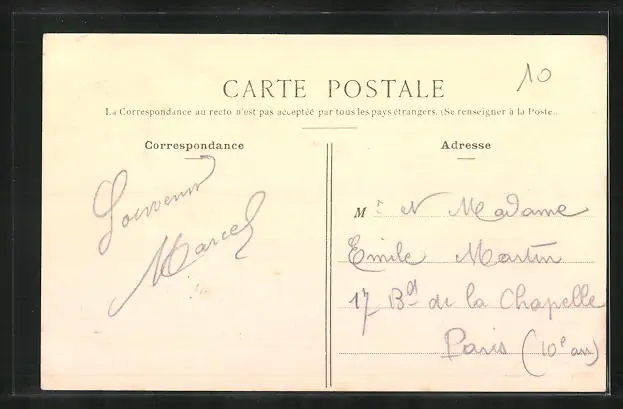 10
CARTE POSTALE
La Correspondance au recto n'est pas acceptée par tous les pays étrangers. (Se renseigner à la Poste.)
Correspondance
Souvenir
Marcel
Adresse
Mr et Madame
Emile Martin
17 Bd de la Chapelle
Paris (10e arr)